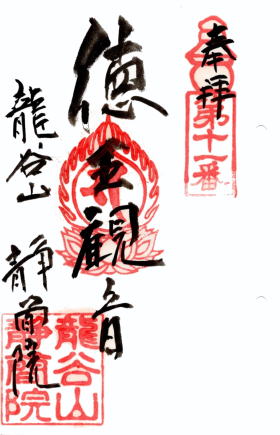 奉拝
第十一番
徳王観音
龍谷山 静蘭院
龍谷山
静蘭院